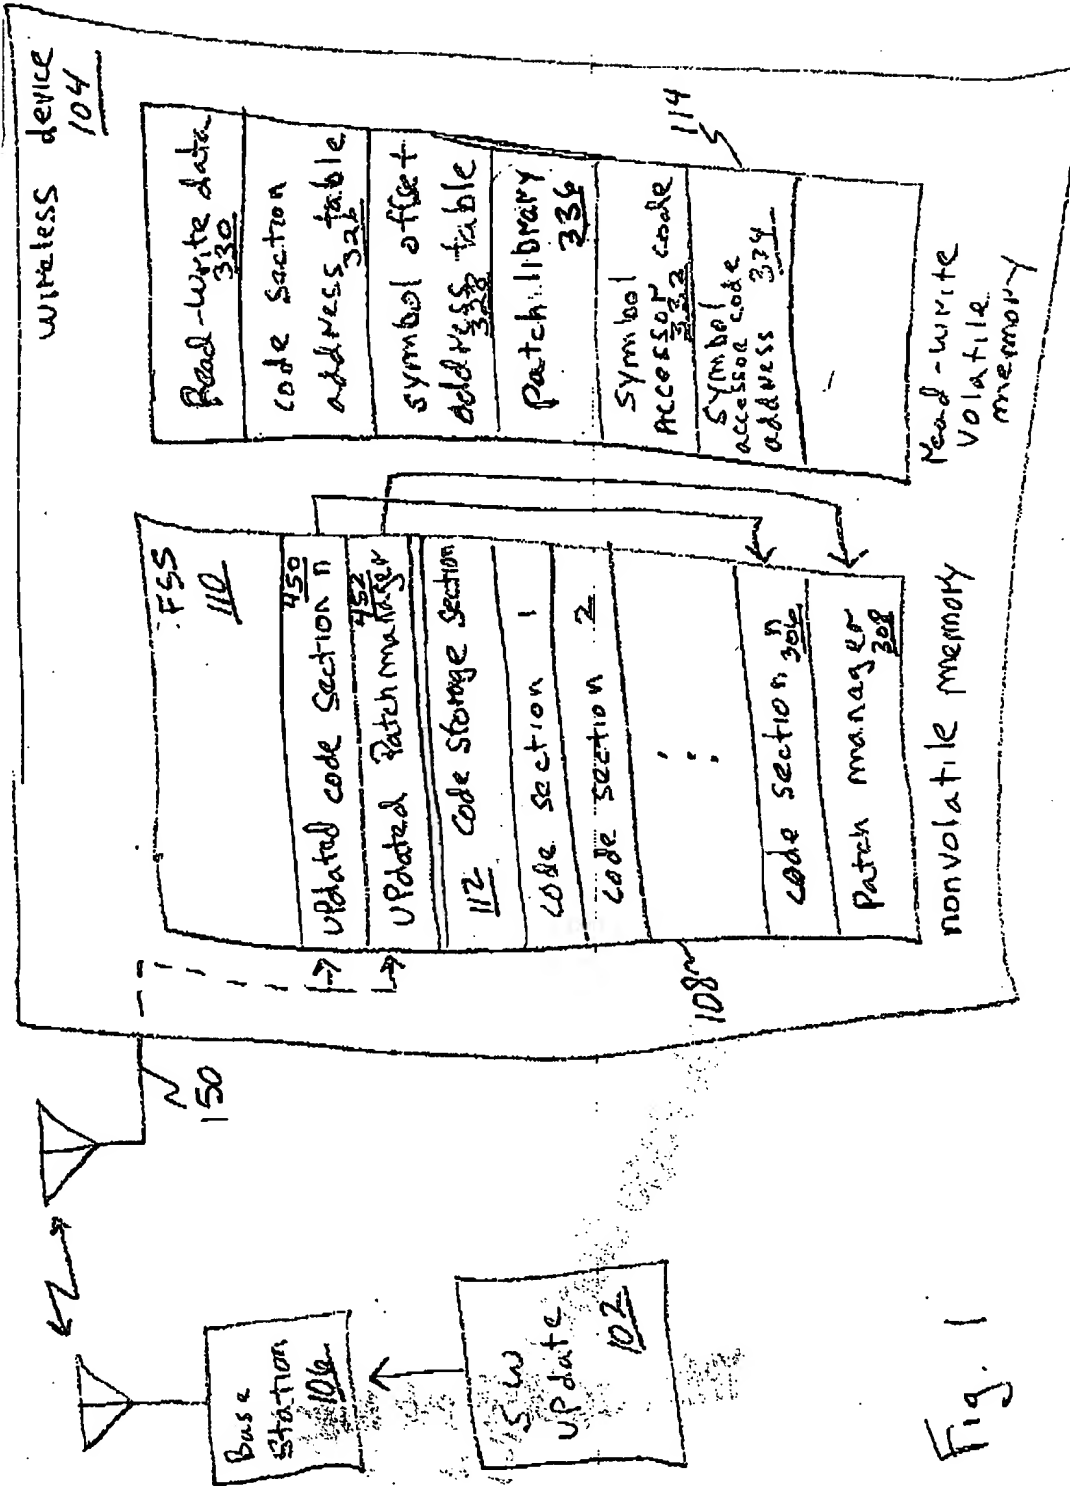 wireless device
104
Read-write data
330
code section
address table
326
symbol offset
address table
328
Patch library
336
symbol
Accessor code
332
symbol
accessor code
address 334
114
Read-write
Volatile
memory
FSS
110
450
updated code section n
452
updated Patch manager
112 code storage section
code section 1
code section 2
code section n
306
Patch manager
308
nonvolatile memory
108
150
Base
Station
106
SW
update
102
Fig. 1